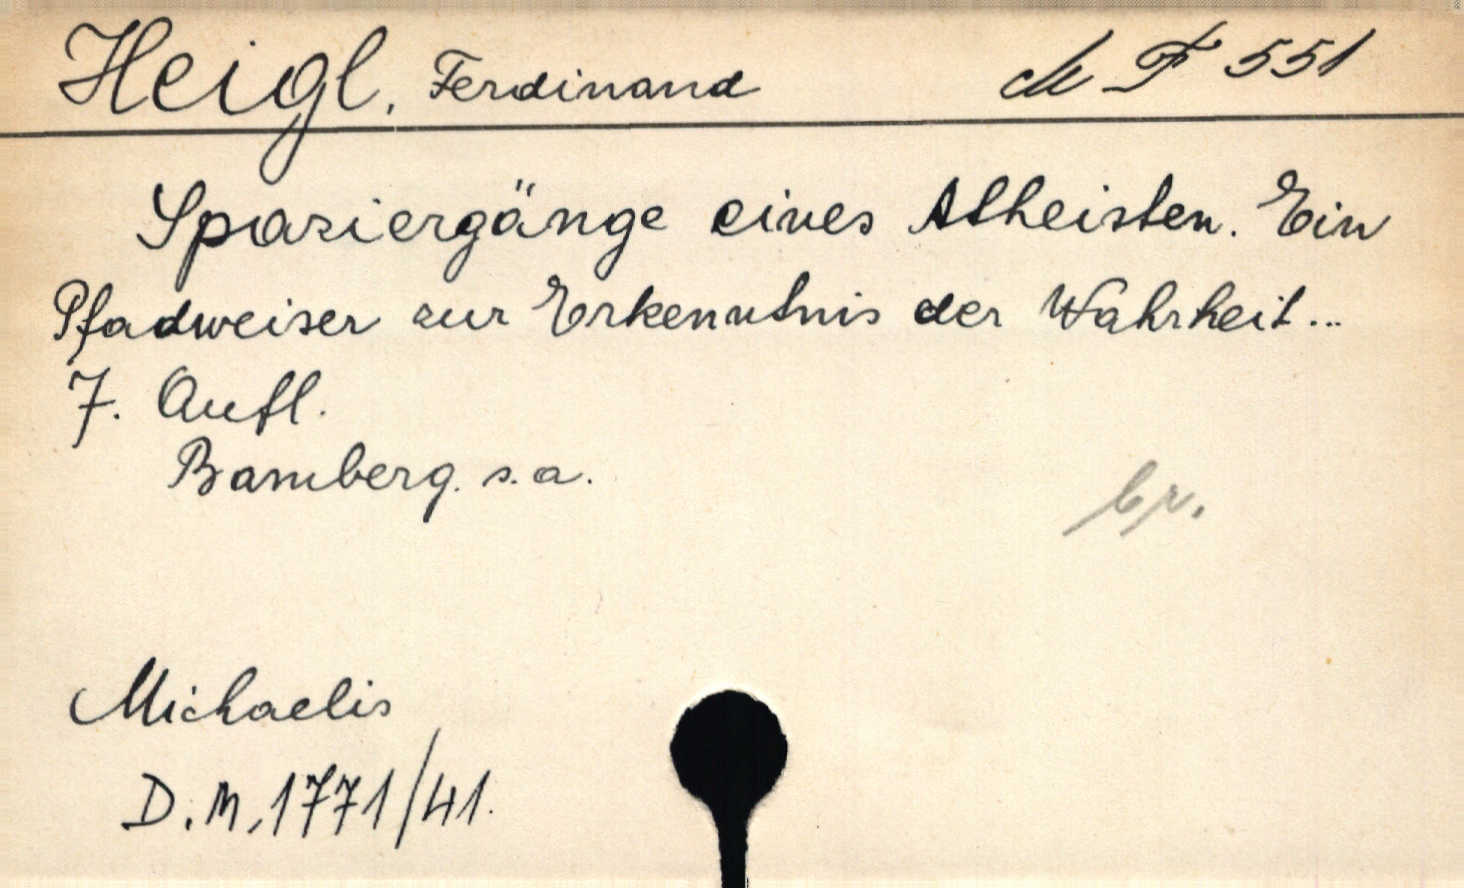 Heigl, Ferdinand
F 551
Spaziergänge eines Atheisten. Ein
Pfadweiser zur Erkenntnis der Wahrheit...
7. Aufl.
Bamberg. s. a.
Michaelis
D. M. 1771/41.